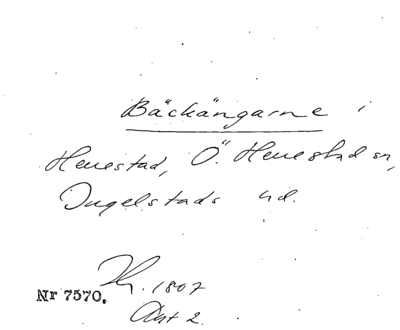 Bäckängarne i
Herrestad, Ö. Herrestad sn,
Ingelstads hd.
Kr. 1807
Nr 7570.
Akt 2.